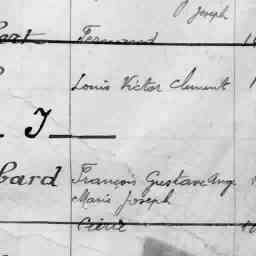 Joseph
Fernand
Louis Victor Clement
J
bard François Gustave Aug.
Marie Joseph
Pierre